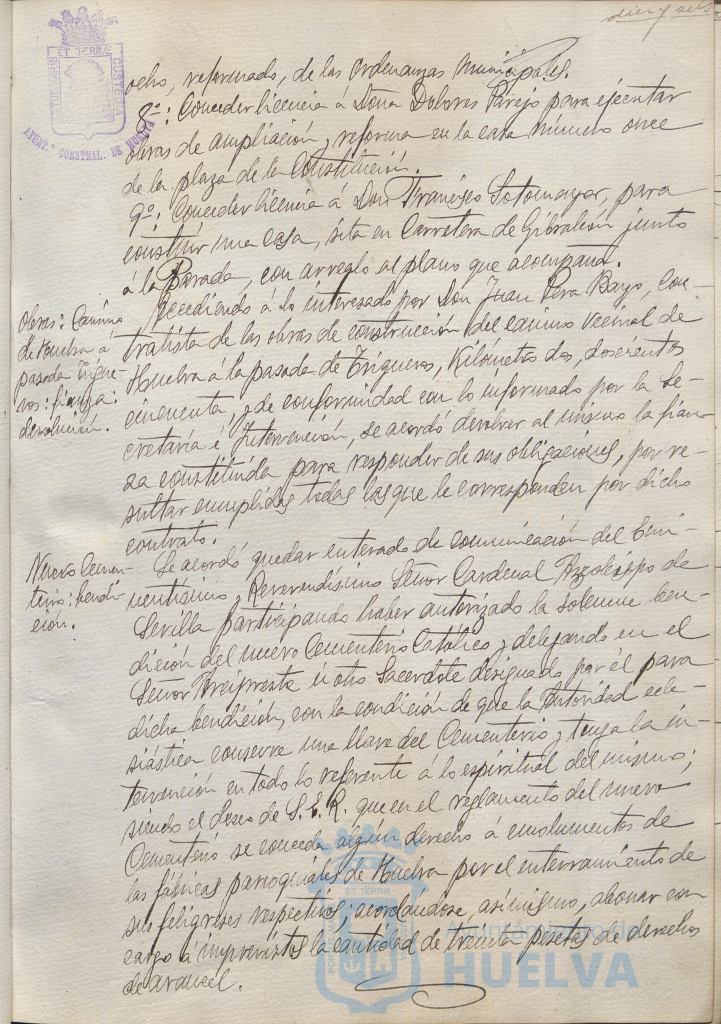 diez y seis
PORTUS MARIS ET TERRAE CUSTODIA
AYUNT.º CONSTNAL. DE HUELVA
ocho, reformado, de las Ordenanzas Municipales.
8º: Conceder licencia á Doña Dolores Parejo para ejecutar
obras de ampliación y reforma en la casa número once
de la plaza de la Constitución.
9º: Conceder licencia á Don Francisco Sotomayor, para
construir una casa, sita en Carretera de Gibraleón junto
á la Parada, con arreglo al plano que acompaña.
Obras: Camino
de Huelva á
pasada Trigue-
ros: fianza:
devolución.
Accediendo á lo interesado por Don Juan Vera Bayo, con-
tratista de las obras de construcción del camino vecinal de
Huelva á la pasada de Trigueros, Kilómetros dos, doscientos
cincuenta, y de conformidad con lo informado por la Se-
cretaría é Intervención, se acordó devolver al mismo la fian-
za constituida para responder de sus obligaciones, por re-
sultar cumplidas todas las que le corresponden por dicho
contrato.
Nuevo Cemen-
terio: bendi-
ción.
Se acordó quedar enterado de comunicación del Emi-
nentísimo y Reverendísimo Señor Cardenal Arzobispo de
Sevilla participando haber autorizado la solemne ben-
dición del nuevo Cementerio Católico y delegando en el
Señor Arcipreste ú otro Sacerdote designado por él para
dicha bendición, con la condición de que la Autoridad ecle-
siástica conserve una llave del Cementerio y tenga la in-
tervención en todo lo referente á lo espiritual del mismo;
siendo el deseo de S. E. R. que en el reglamento del nuevo
Cementerio se conceda algún derecho á emolumentos de
las fábricas parroquiales de Huelva por el enterramiento de
sus feligreses respectivos; acordándose, asimismo, abonar con
cargo á imprevistos la cantidad de treinta pesetas de derechos
de arancel.
Ayuntamiento de
HUELVA